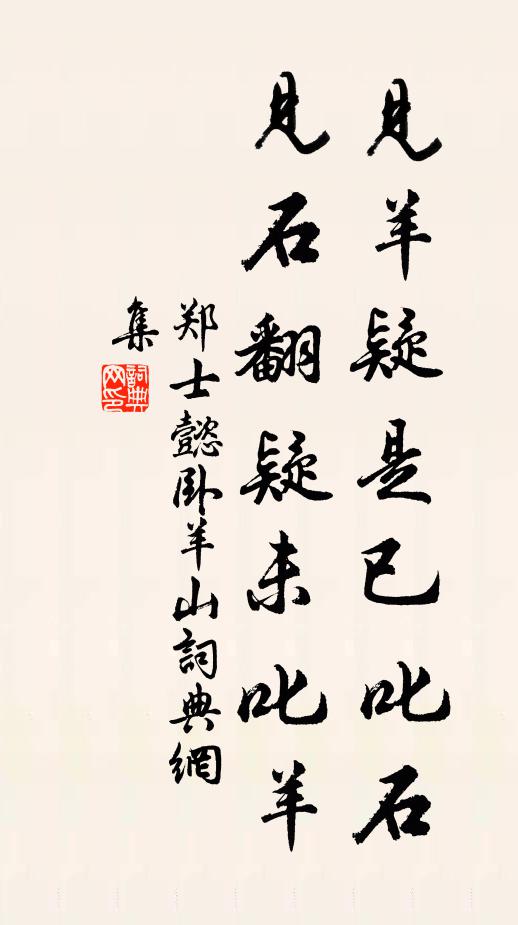 見羊疑是已叱石
見石翻疑未叱羊
郑士懿卧羊山詞典網
集
詞典
网印